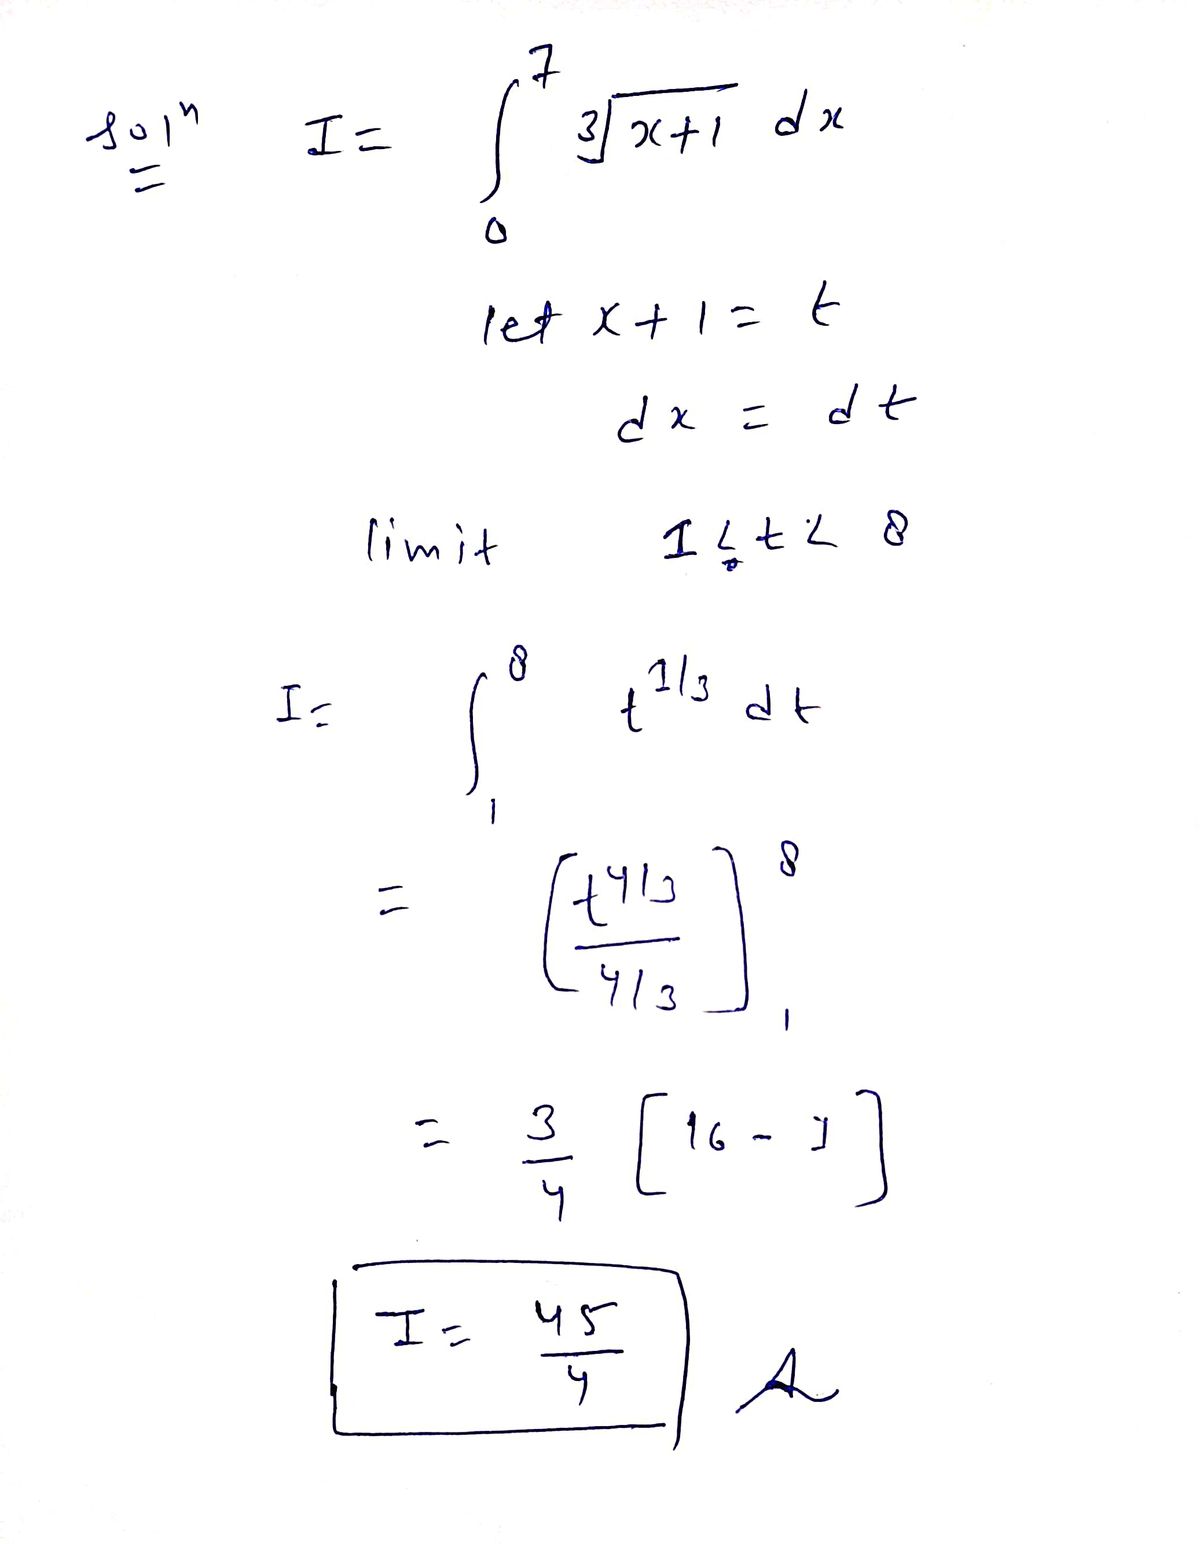 solⁿ I = ∫₀⁷ ∛(x+1) dx
let x + 1 = t
dx = dt
limit 1 ≤ t < 8
I = ∫₁⁸ t^1/3 dt
= [t^4/3 / 4/3]₁⁸
= 3/4 [16 - 1]
I = 45/4